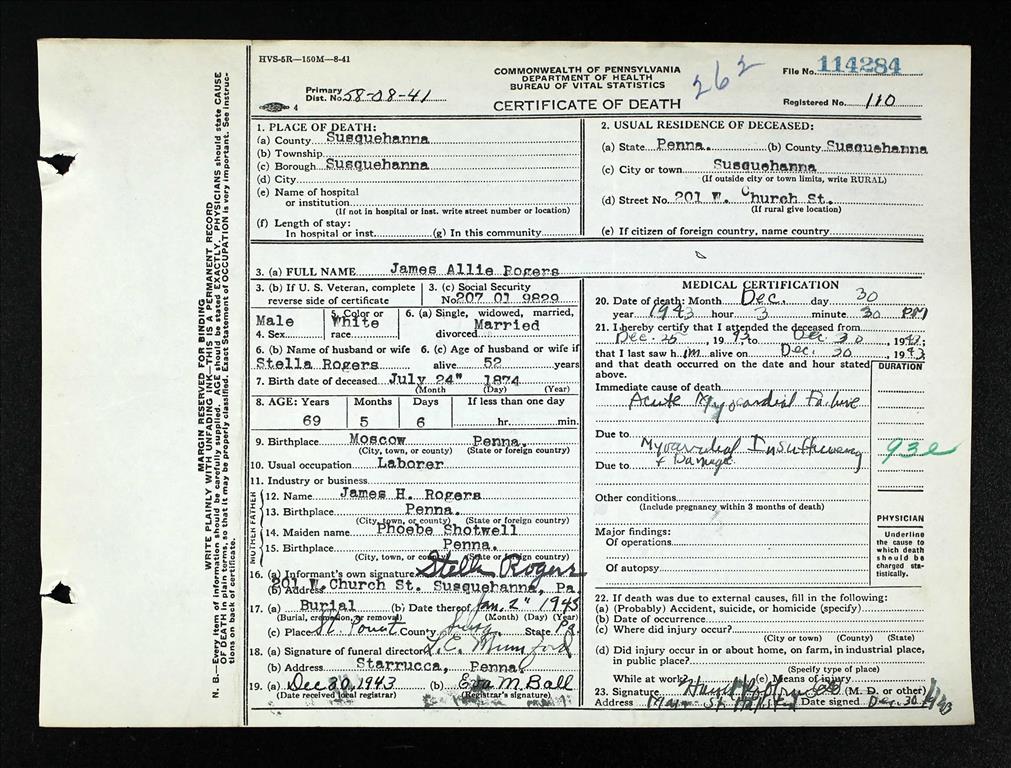 HVS-5R—150M—8-41
COMMONWEALTH OF PENNSYLVANIA
DEPARTMENT OF HEALTH
BUREAU OF VITAL STATISTICS
CERTIFICATE OF DEATH
262
File No. 114284
Registered No. 110
Primary
Dist. No. 58-08-41
4
MARGIN RESERVED FOR BINDING
WRITE PLAINLY WITH UNFADING INK—THIS IS A PERMANENT RECORD
N. B.—Every item of information should be carefully supplied. AGE should be stated EXACTLY. PHYSICIANS should state CAUSE
OF DEATH in plain terms, so that it may be properly classified. Exact Statement of OCCUPATION is very important. See instruc-
tions on back of certificate.
1. PLACE OF DEATH:
(a) County Susquehanna
(b) Township
(c) Borough Susquehanna
(d) City
(e) Name of hospital
or institution
(If not in hospital or inst. write street number or location)
(f) Length of stay:
In hospital or inst. (g) In this community
2. USUAL RESIDENCE OF DECEASED:
(a) State Penna. (b) County Susquehanna
(c) City or town Susquehanna
(If outside city or town limits, write RURAL)
(d) Street No. 201 W. Church St.
(If rural give location)
(e) If citizen of foreign country, name country
3. (a) FULL NAME James Allie Rogers
3. (b) If U. S. Veteran, complete
reverse side of certificate
3. (c) Social Security
No. 207 01 9829
4. Sex Male
5. Color or
race White
6. (a) Single, widowed, married,
divorced Married
6. (b) Name of husband or wife
Stella Rogers
6. (c) Age of husband or wife if
alive 52 years
7. Birth date of deceased July 24" 1874
(Month (Day) (Year)
8. AGE: Years Months Days If less than one day
69 5 6 hr. min.
9. Birthplace Moscow Penna.
(City, town, or county) (State or foreign country)
10. Usual occupation Laborer
11. Industry or business
MOTHER FATHER
12. Name James H. Rogers
13. Birthplace Penna.
(City, town, or county) (State or foreign country)
14. Maiden name Phoebe Shotwell
15. Birthplace Penna.
(City, town, or county) (State or foreign country)
16. (a) Informant's own signature Stella Rogers
(b) Address 201 W. Church St. Susquehanna, Pa.
17. (a) Burial (b) Date thereof Jan. 2" 1943
(Burial, cremation, or removal) (Month) (Day) (Year)
(c) Place County Susq State Pa.
18. (a) Signature of funeral director L. E. Mumford
(b) Address Starrucca, Penna.
19. (a) Dec 30, 1943 (b) Eva M. Ball
(Date received local registrar) (Registrar's signature)
MEDICAL CERTIFICATION
20. Date of death: Month Dec. day 30
year 1943 hour 3 minute 30 PM
21. I hereby certify that I attended the deceased from
Dec. 25, 1943 to Dec 30, 1943;
that I last saw him alive on Dec. 30, 1943
and that death occurred on the date and hour stated
above.
DURATION
Immediate cause of death
Acute Myocardial Failure
Due to Myocardial Insufficiency
Due to & Damage
93e
Other conditions
(Include pregnancy within 3 months of death)
Major findings:
Of operations
Of autopsy
PHYSICIAN
Underline
the cause to
which death
should be
charged sta-
tistically.
22. If death was due to external causes, fill in the following:
(a) (Probably) Accident, suicide, or homicide (specify)
(b) Date of occurrence
(c) Where did injury occur?
(City or town) (County) (State)
(d) Did injury occur in or about home, on farm, in industrial place,
in public place?
(Specify type of place)
While at work? (e) Means of injury
23. Signature (M. D. or other)
Address Main St. Date signed Dec. 30 1943